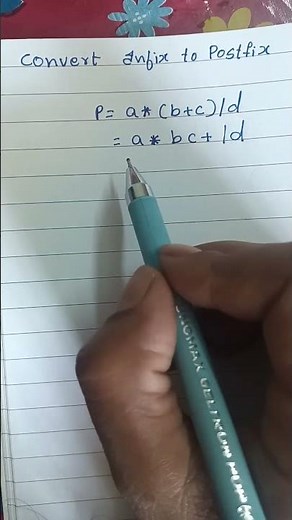 Convert Infix to Postfix
P = a * (b+c) / d
= a * bc+ / d